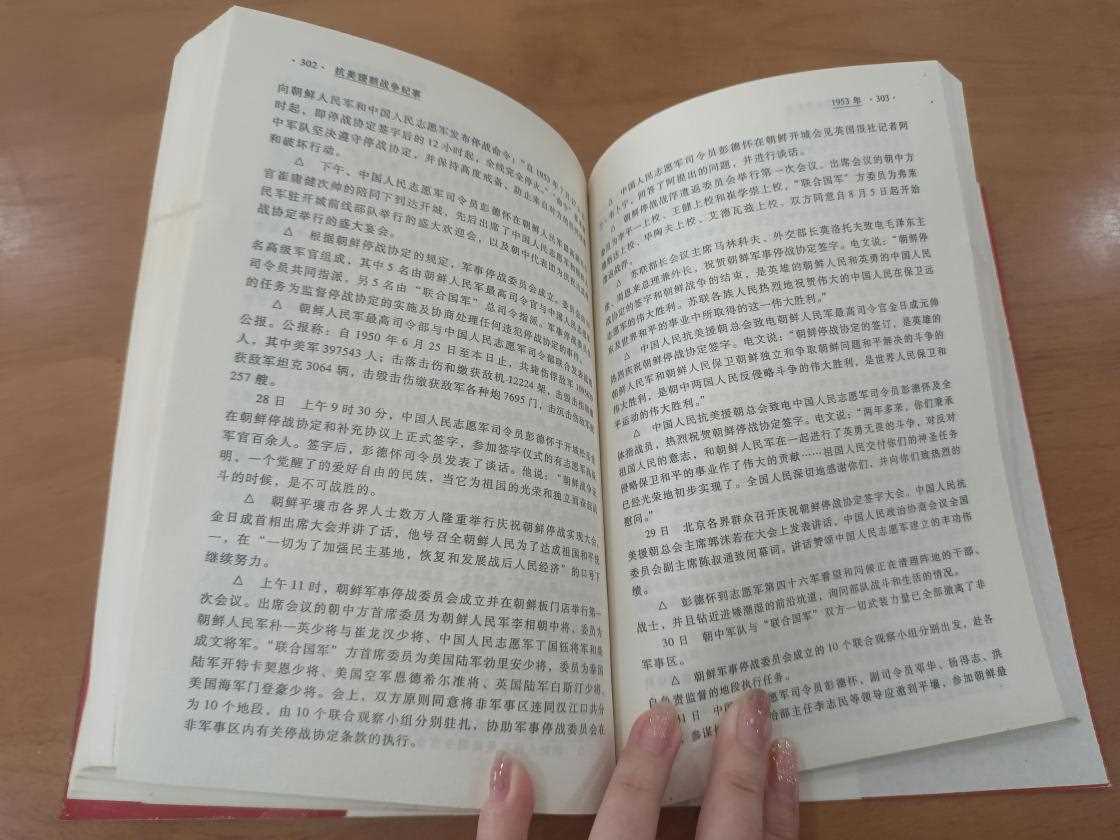 ·302· 抗美援朝战争纪事
向朝鲜人民军和中国人民志愿军发布停战命令："自1953年7月27日
时起，即停战协定签字后的12小时起，全线完全停火。
中军队坚决遵守停战协定，并保持高度戒备，防止来自对方的
和破坏行动。
△ 下午，中国人民志愿军司令员彭德怀在朝鲜人民军最高司令
官崔庸健次帅的陪同下到达开城，先后出席了中国人民志愿军和朝鲜人
民军驻开城前线部队举行的盛大欢迎会，以及朝中代表团为庆祝停
战协定举行的盛大宴会。
△ 根据朝鲜停战协定的规定，军事停战委员会成立。委员会由
名高级军官组成，其中5名由朝鲜人民军最高司令官与中国人民志愿军
司令员共同指派，另5名由"联合国军"总司令指派。军事停战委员会
的任务为监督停战协定的实施及协商处理任何违犯停战协定的事件。
△ 朝鲜人民军最高司令部与中国人民志愿军司令部联合发表战绩
公报。公报称：自1950年6月25日至本日止，共毙伤俘敌军
人，其中美军397543人；击落击伤和缴获敌机12224架，击毁击伤和缴
获敌军坦克3064辆，击毁击伤缴获敌军各种炮7695门，击沉击伤敌军舰
257艘。
28日 上午9时30分，中国人民志愿军司令员彭德怀于开城
在朝鲜停战协定和补充协议上正式签字，参加签字仪式的有志愿军高级
军官百余人。签字后，彭德怀司令员发表了谈话。他说："朝鲜战争证
明，一个觉醒了的爱好自由的民族，当它为祖国的光荣和独立而奋起战
斗的时候，是不可战胜的。
△ 朝鲜平壤市各界人士数万人隆重举行庆祝朝鲜停战实现大会，
金日成首相出席大会并讲了话，他号召全朝鲜人民为了达成祖国和平统
一，在"一切为了加强民主基地，恢复和发展战后人民经济"的口号下
继续努力。
△ 上午11时，朝鲜军事停战委员会成立并在朝鲜板门店举行第一
次会议。出席会议的朝中方首席委员为朝鲜人民军李相朝中将、委员为
朝鲜人民军朴一英少将与崔龙汉少将、中国人民志愿军丁国钰将军和柴
成文将军。"联合国军"方首席委员为美国陆军勃里安少将，委员为泰国
陆军开特卡契恩少将、美国空军恩德希尔准将、英国陆军白斯汀少将、
美国海军门登豪少将。会上，双方原则同意将非军事区连同汉江口共分
为10个地段，由10个联合观察小组分别驻扎，协助军事停战委员会在
非军事区内有关停战协定条款的执行。
1953年 ·303·
中国人民志愿军司令员彭德怀在朝鲜开城会见英国报社记者阿
回答了阿提出的问题，并进行谈话。
△ 朝鲜停战战俘遣返委员会举行第一次会议。出席会议的朝中方
委员为李平一上校、王健上校和崔学崇上校，"联合国军"方委员为弗莱
上校、毕陶夫上校、艾德瓦兹上校。双方同意自8月5日起开始
遣返战俘。
△ 苏联部长会议主席马林科夫、外交部长莫洛托夫致电毛泽东主
席、周恩来总理兼外长，祝贺朝鲜军事停战协定签字。电文说："朝鲜停
战协定的签字和朝鲜战争的结束，是英雄的朝鲜人民和英勇的中国人民
志愿军的伟大胜利。苏联各族人民热烈地祝贺伟大的中国人民在保卫远
东及世界和平的事业中所取得的这一伟大胜利。"
△ 中国人民抗美援朝总会致电朝鲜人民军最高司令官金日成元帅
热烈庆祝朝鲜停战协定签字。电文说："朝鲜停战协定的签订，是英雄的
朝鲜人民军和朝鲜人民保卫朝鲜独立和争取朝鲜问题和平解决的斗争的
伟大胜利，是朝中两国人民反侵略斗争的伟大胜利，是世界人民保卫和
平运动的伟大胜利。"
△ 中国人民抗美援朝总会致电中国人民志愿军司令员彭德怀及全
体指战员，热烈祝贺朝鲜停战协定签字。电文说："两年多来，你们秉承
祖国人民的意志，和朝鲜人民军在一起进行了英勇无畏的斗争，对反对
侵略保卫和平的事业作了伟大的贡献……祖国人民交付你们的神圣任务
已经光荣地初步实现了。全国人民深切地感谢你们，并向你们致热烈的
慰问。"
29日 北京各界群众召开庆祝朝鲜停战协定签字大会。中国人民抗
美援朝总会主席郭沫若在大会上发表讲话，中国人民政治协商会议全国
委员会副主席陈叔通致闭幕词，讲话赞颂中国人民志愿军建立的丰功伟
绩。
△ 彭德怀到志愿军第四十六军看望和问候正在清理阵地的干部、
战士，并且钻近进矮潮湿的前沿坑道，询问部队战斗和生活的情况。
30日 朝中军队与"联合国军"双方一切武装力量已全部撤离了非
军事区。
△ 朝鲜军事停战委员会成立的10个联合观察小组分别出发，赴各
自负责监督的地段执行任务。
31日 中国 愿军司令员彭德怀，副司令员邓华、杨得志、洪
参谋 治部主任李志民等领导应邀到平壤，参加朝鲜最